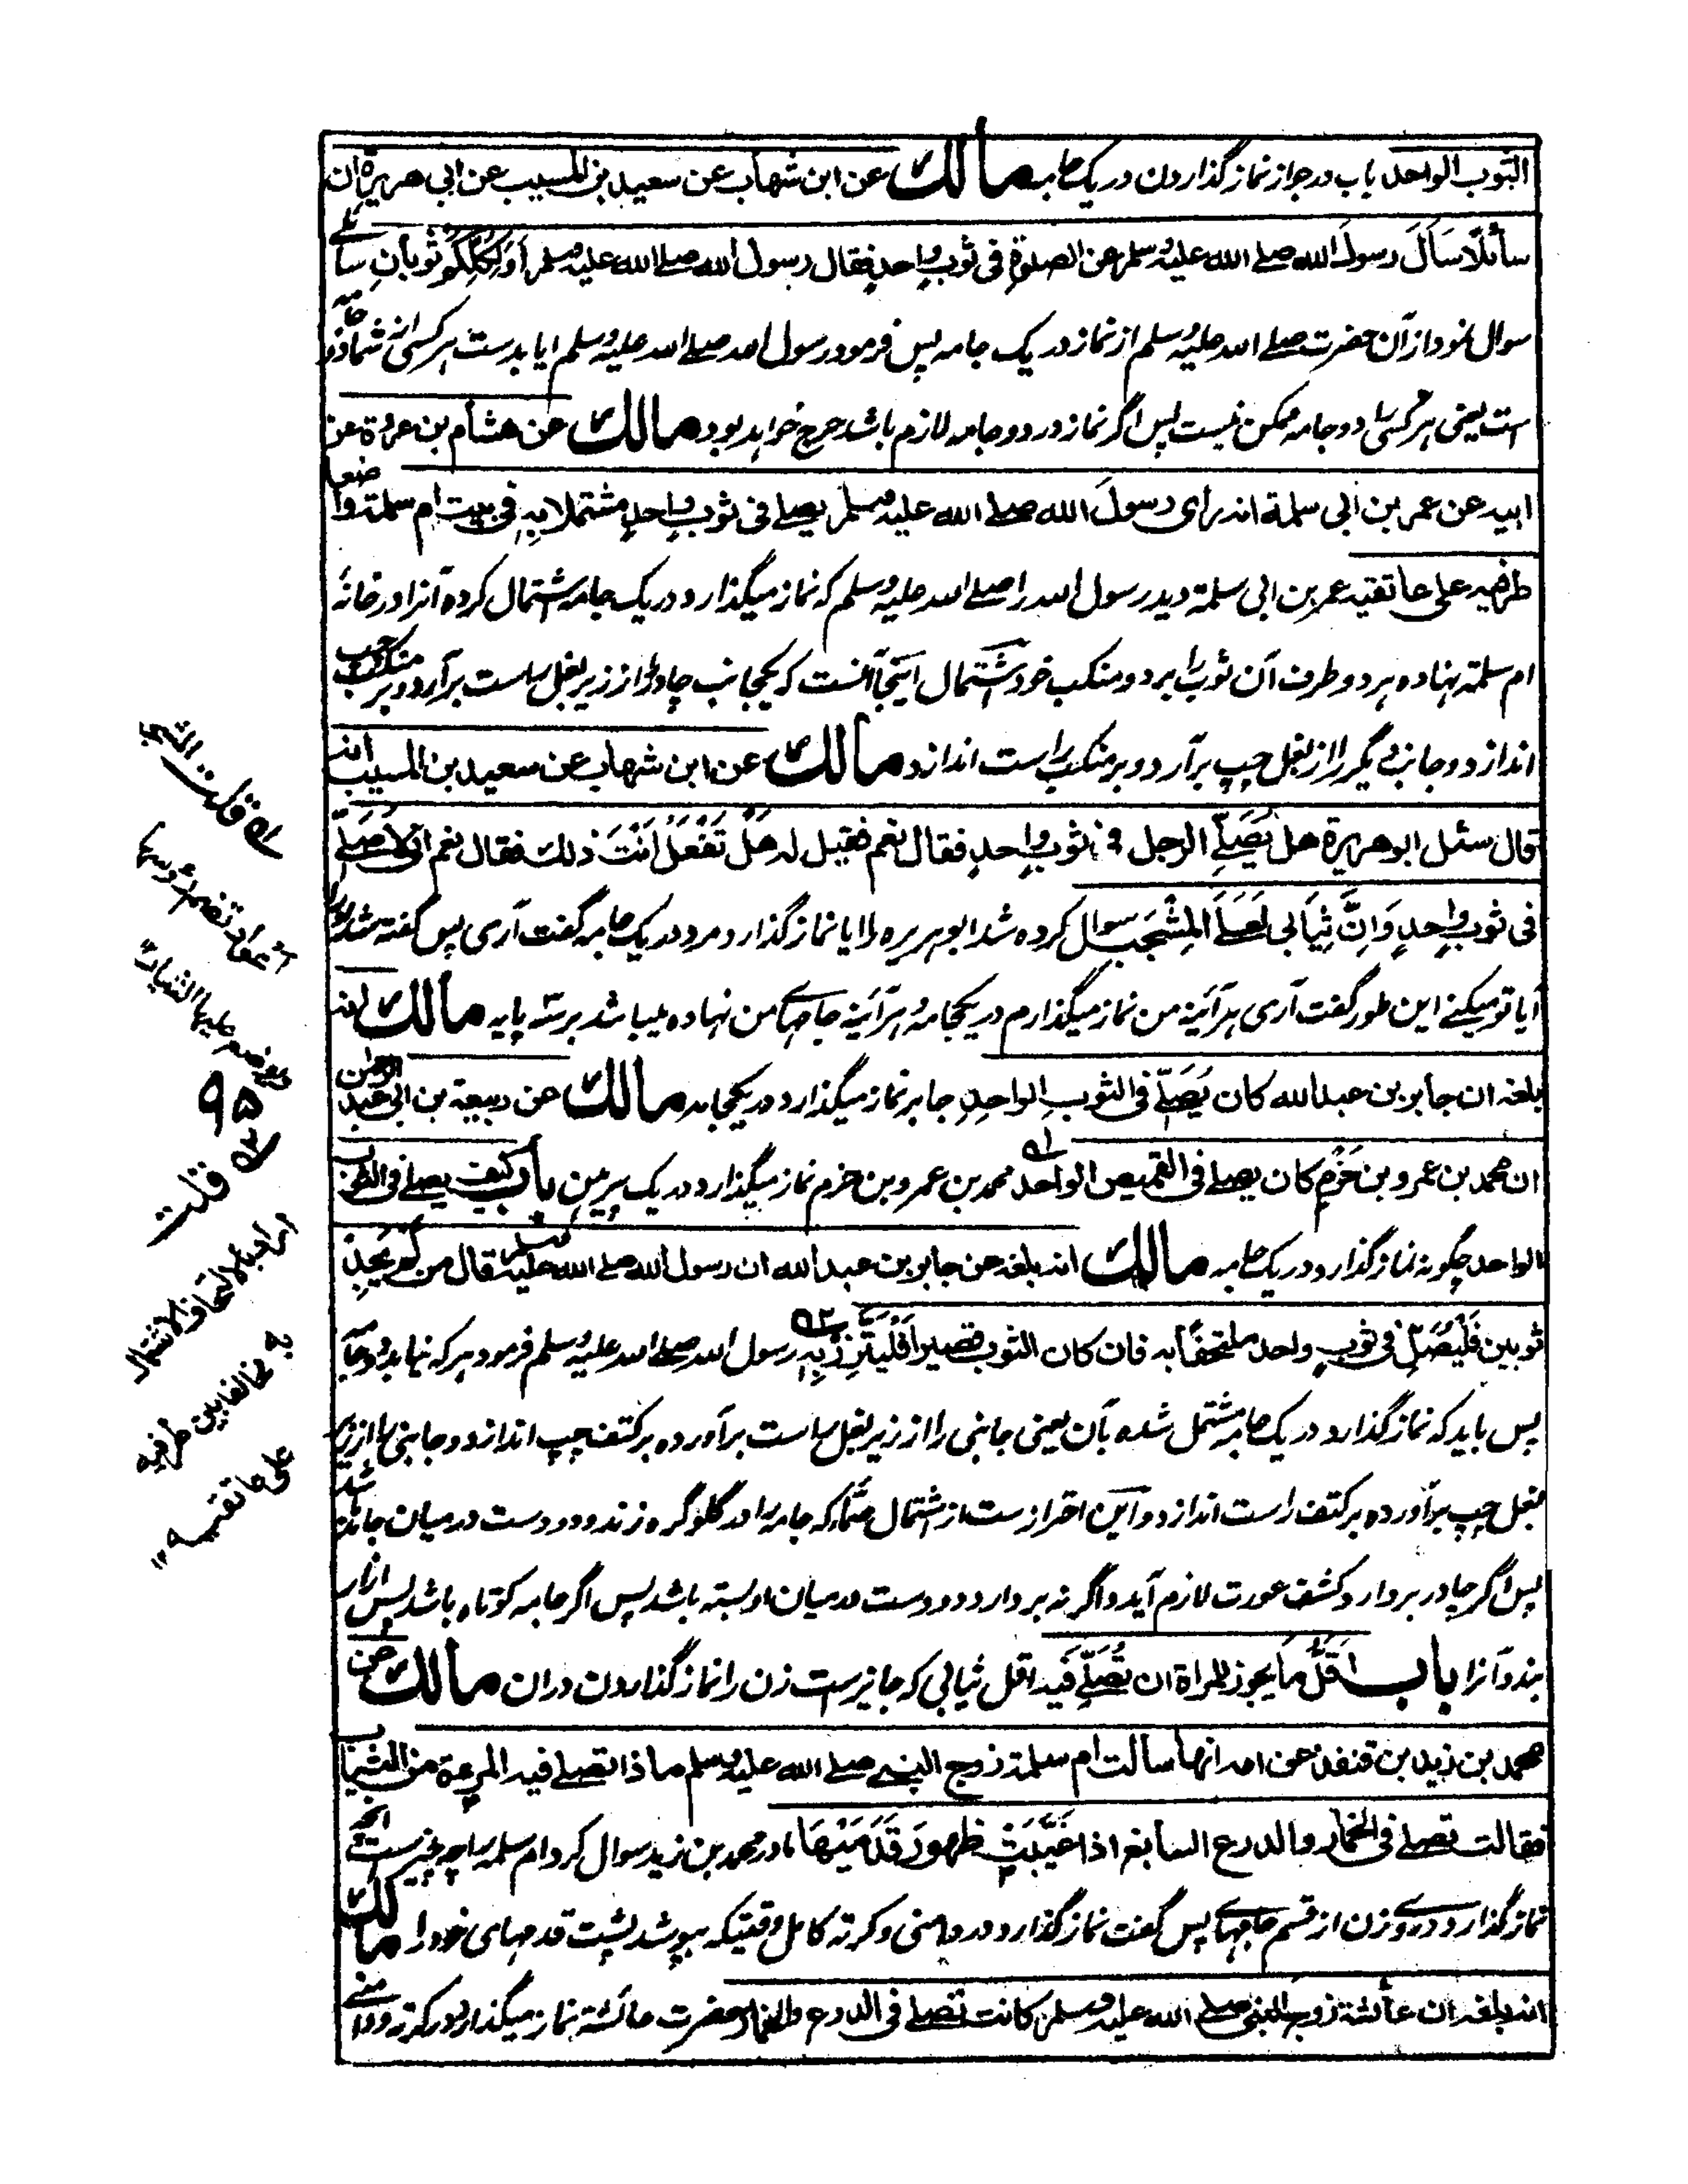 الثوب الواحد باب در جواز نماز گذاردن در یک جامه مالك عن ابن شهاب عن سعید بن المسیب عن ابی هریرة ان
سائلًا سَاَلَ رسولَ الله صلے الله علیه وسلم عن الصلوة فی ثوبٍ واحدٍ فقال رسول الله صلے الله علیه وسلم أوَلِكُلِّكُمْ ثوبان سائلے
سوال نمود از آن حضرت صلے الله علیه وسلم از نماز در یک جامه پس فرمود رسول الله صلے الله علیه وسلم ایا بدست هر کسی از شما دو جامه
است یعنی هر کسی را دو جامه ممکن نیست پس اگر نماز در دو جامه لازم باشد حرج خواهد بود مالك عن هشام بن عروة عن
ابیه عن عمر بن ابی سلمة انه رأی رسولَ الله صلے الله علیه وسلم یصلے فی ثوبٍ واحدٍ مشتملا بِه فی بیت ام سلمة واضعا
طرفیه علی عاتقیه عمر بن ابی سلمة دید رسول الله را صلے الله علیه وسلم که نماز میگذارد در یک جامه اشتمال کرده آنرا در خانهٔ
ام سلمة نهاده هر دو طرف آن ثوب را بر دو منکب خود اشتمال اینجا آنست که یکجانب چادر را از زیر بغل راست برآرد و بر منکب چپ
اندازد و جانب دیگر را از بغل چپ برآرد و بر منکب راست اندازد مالك عن ابن شهاب عن سعید بن المسیب انه
قال سئل ابو هریرة هل یُصَلِّے الرجل فی ثوبٍ واحدٍ فقال نعم فقیل له هَلْ تَفْعَلُ اَنْتَ ذلك فقال نعم انی لاُصَلِّے
فی ثوبٍ واحدٍ وَاِنَّ ثِیَابی لَعَلَے المِشْجَب سوال کرده شد ابو هریره را ایا نماز گذارد مرد در یک جامه گفت آری پس گفته شد او را
آیا تو میکنے این طور گفت آری هر آئینه من نماز میگذارم در یکجامه و هر آئینه جامهاے من نهاده میباشد بر سه پایه مالك انه
بلغه ان جابر بن عبد الله كان یُصَلّے فی الثوبِ الواحدِ جابر نماز میگذارد در یکجامه مالك عن ربیعة بن ابی عبد الرحمن
ان محمد بن عمرو بن حَزْمٍ كان یصلے فی القمیص الواحد محمد بن عمرو بن حزم نماز میگذارد در یک پیرهن باب کیف یصلے فی الثوب
الواحد چگونه نماز گذارد در یک جامه مالك انه بلغه عن جابر بن عبد الله ان رسول الله صلے الله علیه وسلم قال من لم یَجِدْ
ثوبین فَلْیُصَلِّ فی ثوبٍ واحد ملتحفًا به فان كان الثوب قصیرا فَلْیَتَّزِرْ بِه رسول الله صلے الله علیه وسلم فرمود هر که نیابد دو جامه
پس باید که نماز گذارد در یک جامه مشتمل شده بآن یعنی جانبی را از زیر بغل راست برآورده بر کتف چپ اندازد و جانبی را از زیر
بغل چپ برآورده بر کتف راست اندازد و این احتراز ست از اشتمال صماء که جامه را در گلو گره زند و دو دست در میان جامه باشد
پس اگر چادر بردارد کشف عورت لازم آید و اگر نه بردارد دو دست در میان او بسته باشد پس اگر جامه کوتاه باشد پس ازار
بندد آنرا باب اَقَلُّ مَا یجوز للمراة ان تُصَلِّے فیه اقل ثیابی که جائز ست زن را نماز گذاردن دران مالك عن
محمد بن زید بن قنفذ عن امه انها سالت ام سلمة زوج النبے صلے الله علیه وسلم ماذا تصلے فیه المرءة من الثیاب
فقالت تصلے فی الخمار والدرع السابغ اذا غَیَّبَتْ ظهورَ قَدَمَیْهَا مادر محمد بن زید سوال کرد ام سلمه را چه چیز ست آنچه
نماز گذارد در وے زن از قسم جامهاے پس گفت نماز گذارد در دامنی و کرته کامل وقتیکه بپوشد پشت قدمهای خود را مالك
انه بلغه ان عائشة زوج النبی صلے الله علیه وسلم كانت تصلے فی الدرع والخمار حضرت عائشة نماز میگذارد در کرته و دامنے
قلت المشجب
عیدان تضم رؤسها
ویوضع علیها الثیاب
۹۵
قلت
اراد بالالتحاف الاشتمال
به مخالفا بین طرفیه
علی عاتقیه ۱۲